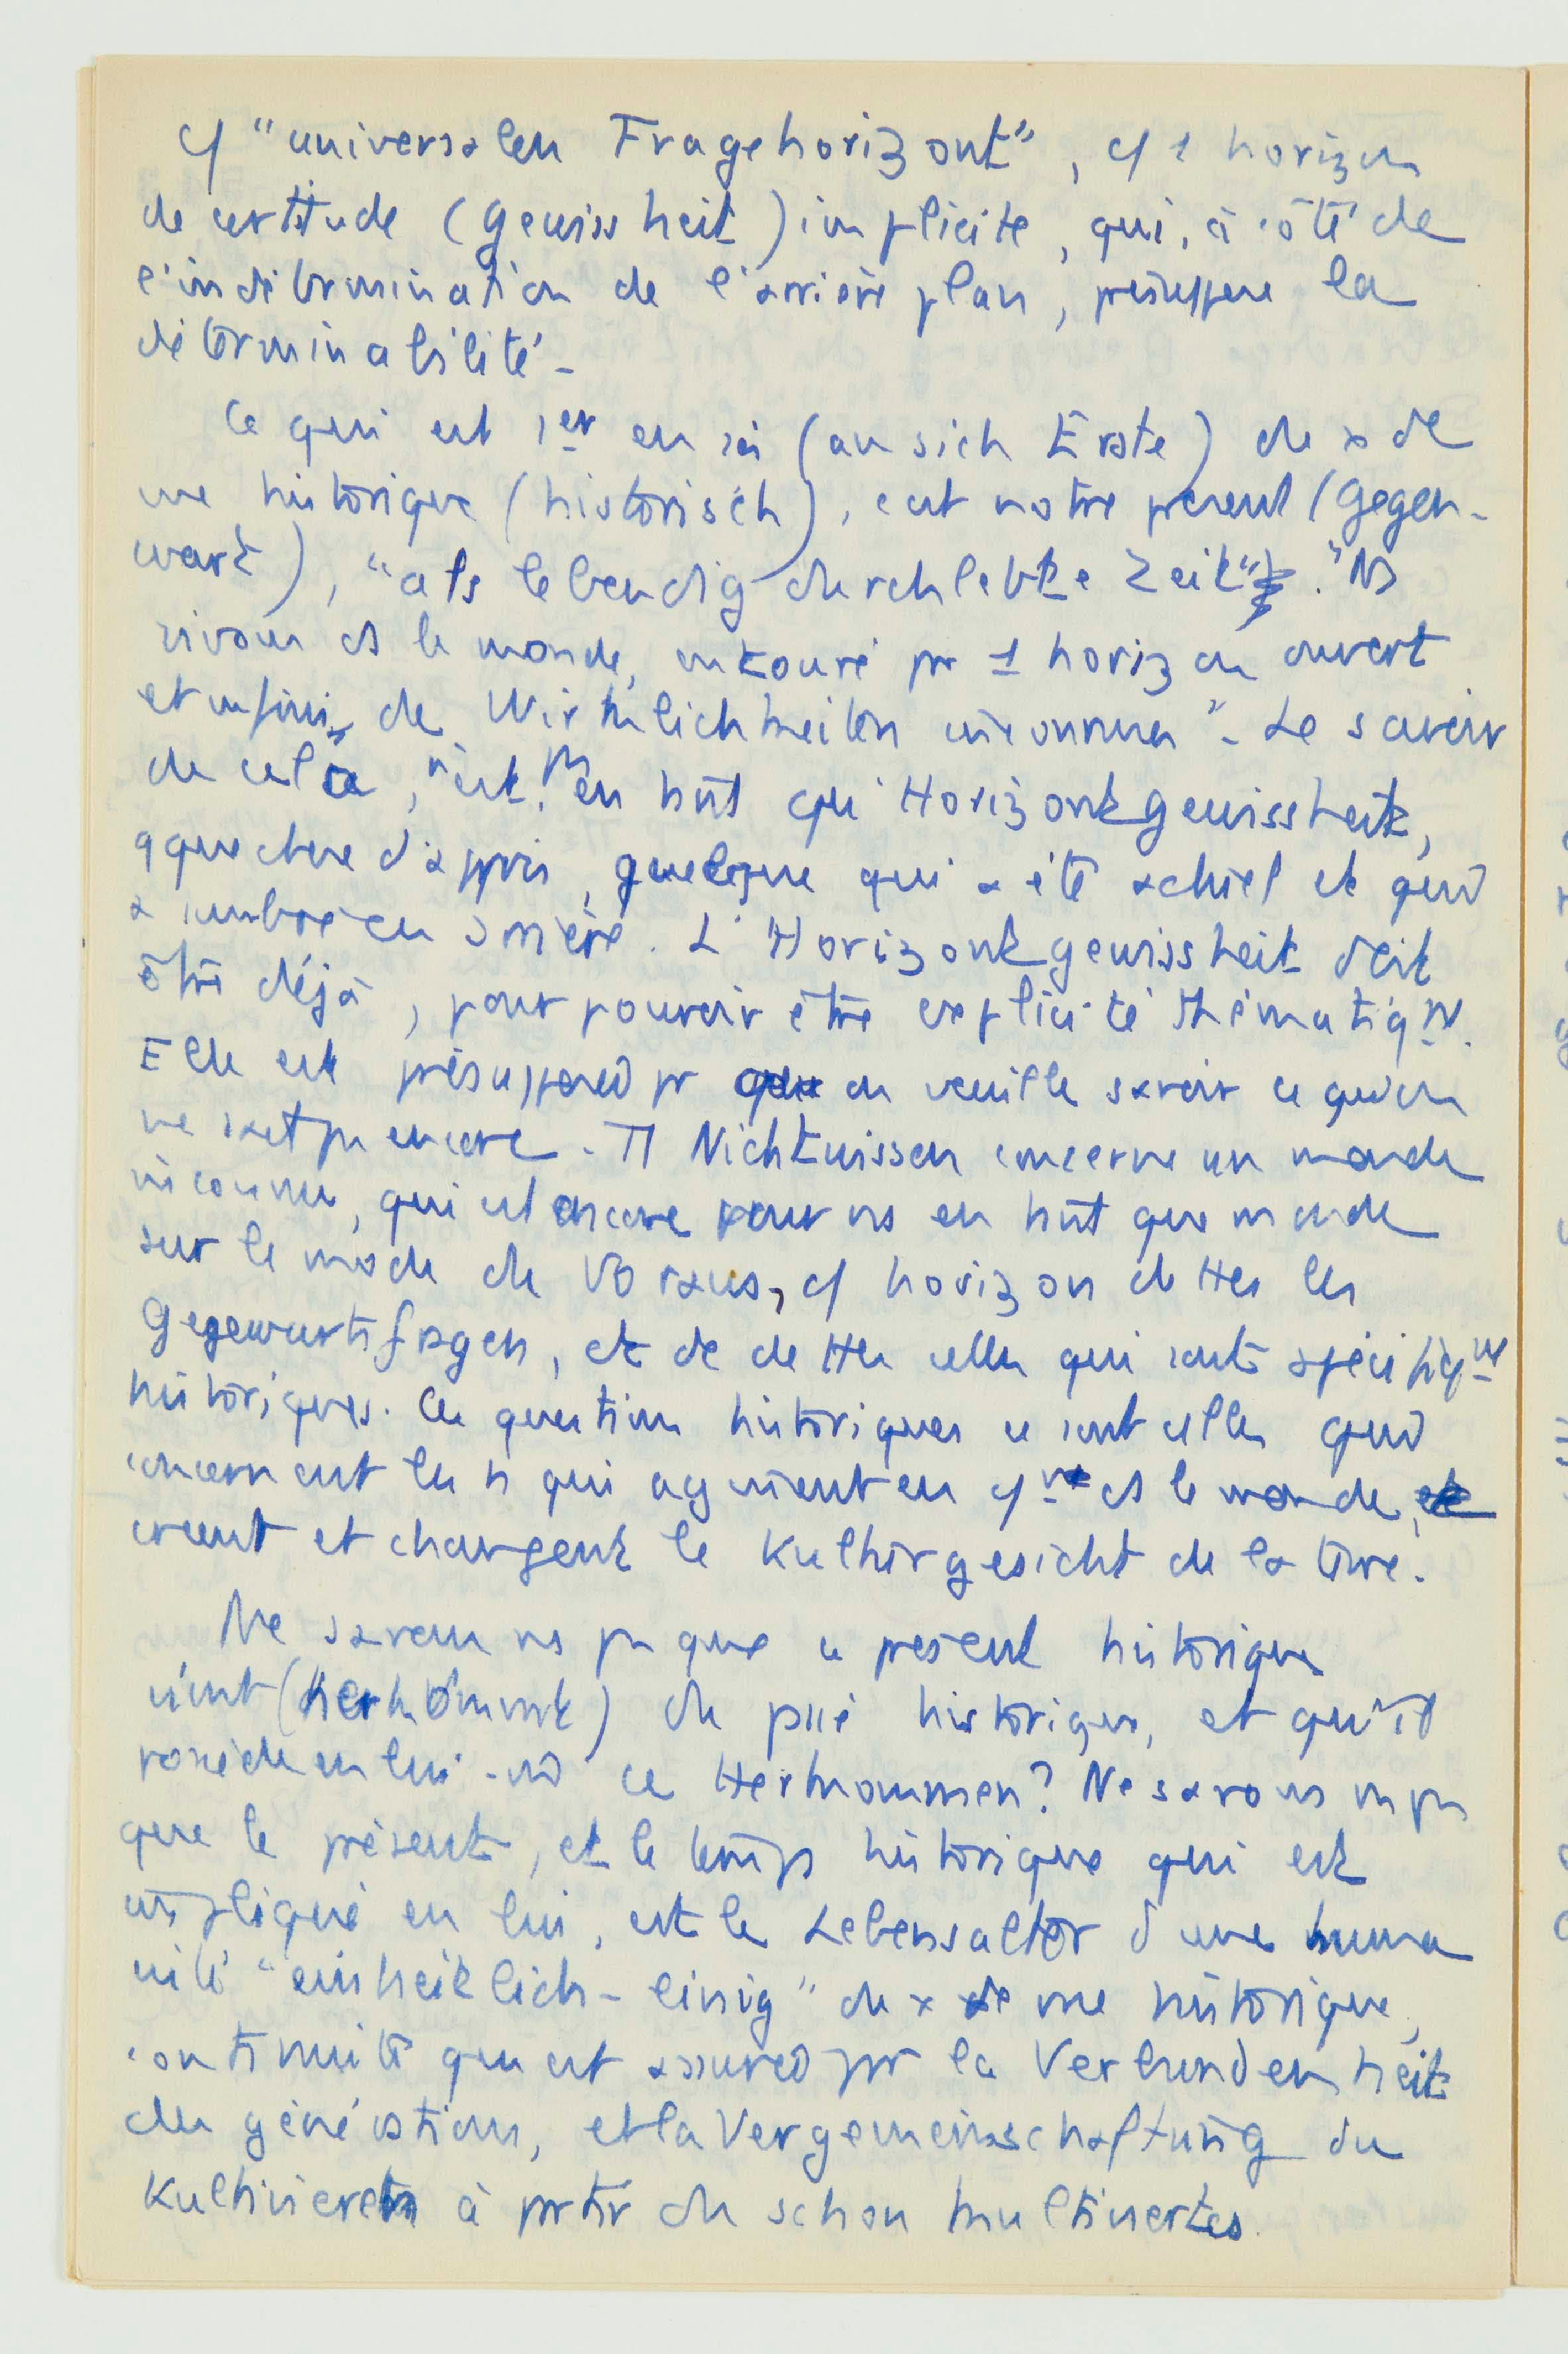 cf "universalen Fragehorizont", cf 1 horizon
de certitude (Gewissheit) implicite, qui, à côté de
l'indétermination de l'arrière plan, présuppose la
déterminabilité -
Ce qui est 1er en soi (an sich Erste) du x de
vue historique (historisch), c'est notre présent (Gegen-
wart), "als lebendig durchlebte Zeit". "Ns
vivons ds le monde, entouré pr 1 horizon ouvert
et infini de Wirklichkeiten inconnues" - Le savoir
de cela, n'est, en tant qu'Horizontgewissheit,
qque chose d'appris, quelque qui a été actuel et qui
a sombré en arrière. L'Horizontgewissheit doit
être déjà, pour pouvoir être explicité thématiqnt.
Elle est présupposée pr qu'on veuille savoir ce qu'on
ne sait pas encore - Tt Nichtwissen concerne un monde
inconnu, qui est encore pour ns en tant que monde
sur le mode du Voraus, cf horizon de ttes les
Gegenwartsfragen, et de de ttes celles qui sont spécifiqnt
historiques. Ces questions historiques ce sont celles qui
concernent les h qui agissent en ds le monde,
créent et changent le Kulturgesicht de la terre.
Ne savons ns pas que ce présent historique
vient (herkommt) du passé historique, et qu'il
possède en lui-m ce Herkommen? Ne savons ns pas
que le présent, et le temps historique qui est
impliqué en lui, est le Lebensalter d'une huma
nité "einheitlich-einig" du x de vue historique,
continuité qui est assurée pr la Verbundenheit
des générations, et la Vergemeinschaftung du
Kultivieren à partir du schon kultiviertes